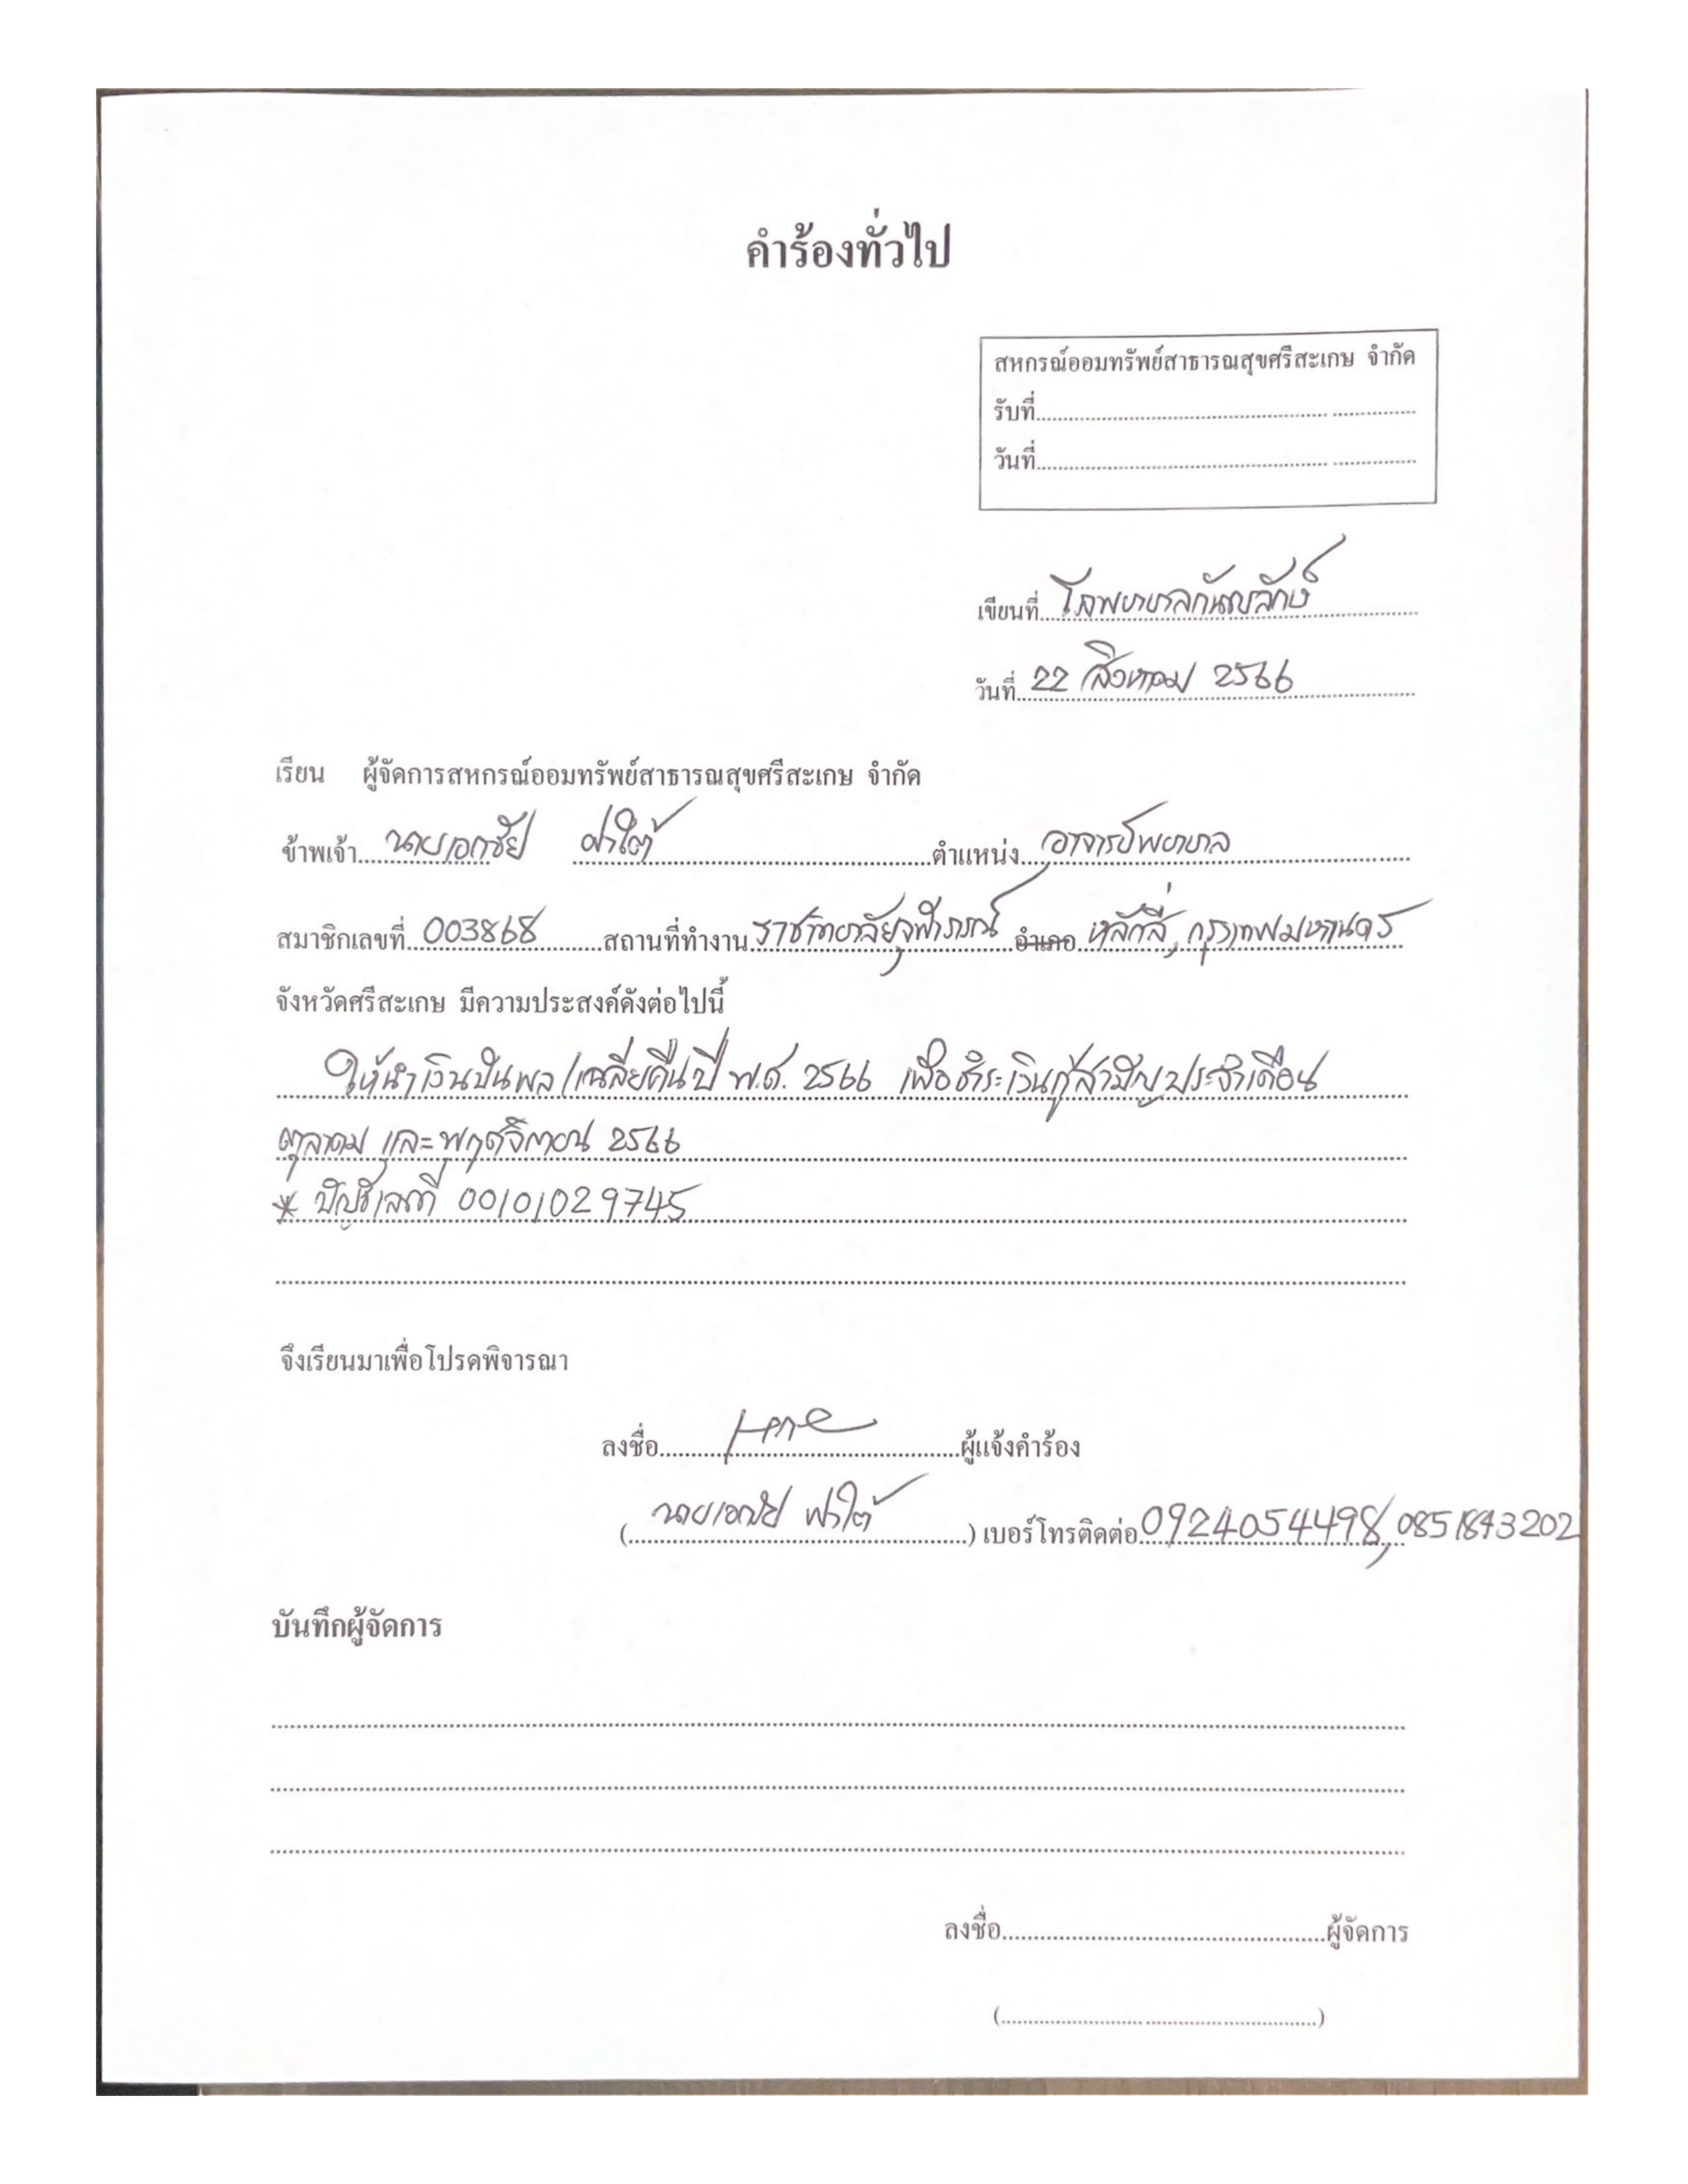 คำร้องทั่วไป
สหกรณ์ออมทรัพย์สาธารณสุขศรีสะเกษ จำกัด
รับที่
วันที่
เขียนที่ โรงพยาบาลกันทรลักษ์
วันที่ 22 สิงหาคม 2566
เรียน ผู้จัดการสหกรณ์ออมทรัพย์สาธารณสุขศรีสะเกษ จำกัด
ข้าพเจ้า นายเอกชัย ฝาใต้ ตำแหน่ง อาจารย์พยาบาล
สมาชิกเลขที่ 003868 สถานที่ทำงาน ราชวิทยาลัยจุฬาภรณ์ อำเภอ หลักสี่, กรุงเทพมหานคร
จังหวัดศรีสะเกษ มีความประสงค์ดังต่อไปนี้
ให้นำเงินปันผล/เฉลี่ยคืนปี พ.ศ. 2566 เพื่อชำระเงินกู้สามัญประจำเดือน
ตุลาคม และพฤศจิกายน 2566
* บัญชีเลขที่ 00101029745
จึงเรียนมาเพื่อโปรดพิจารณา
ลงชื่อ ผู้แจ้งคำร้อง
(นายเอกชัย ฝาใต้) เบอร์โทรติดต่อ 0924054498, 0851843202
บันทึกผู้จัดการ
ลงชื่อ ผู้จัดการ